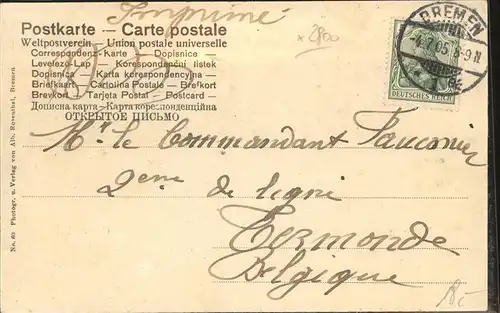 Imprimé
Postkarte — Carte postale
Weltpostverein — Union postale universelle
Correspondenz-Karte — Dopisnice
Levelező-Lap — Korespondenční lístek
Dopisnica — Karta korespondencyjna
Briefkaart — Cartolina Postale — Brefkort
Brevkort — Tarjeta Postal — Postcard
Дописна карта — Карта кореспонденційна
ОТКРЫТОЕ ПИСЬМО
2800
BREMEN
4.7.05. 8-9N
DEUTSCHES REICH
Mr. le Commandant Fauconier
2ème de ligne
Termonde
Belgique
No. 60 Photogr. u. Verlag von Alb. Rosenthal, Bremen